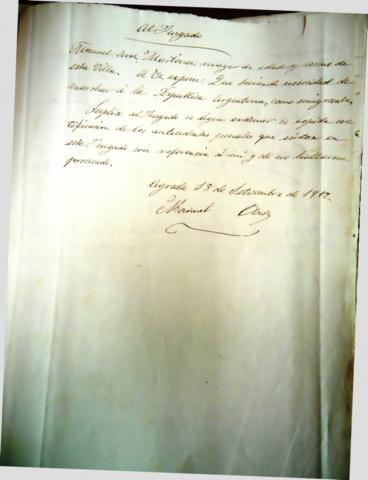 Al Juzgado
Manuel Martinez mayor de edad y vecino de
esta Villa. A V. expone: Que teniendo necesidad de
marchar á la Republica Argentina, como emigrante,
Suplica al Juzgado se digne ordenar se expida cer-
tificación de los antecedentes penales que existan en
este Juzgado con referencia á mi y de no hallarme
procesado.
Agreda 15 de Setiembre de 1912
Manuel